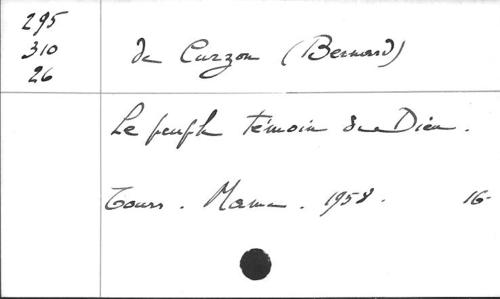 295
310
26
de Curzon (Bernard)
Le peuple témoin de Dieu.
Tours. Mame. 1958. 16-